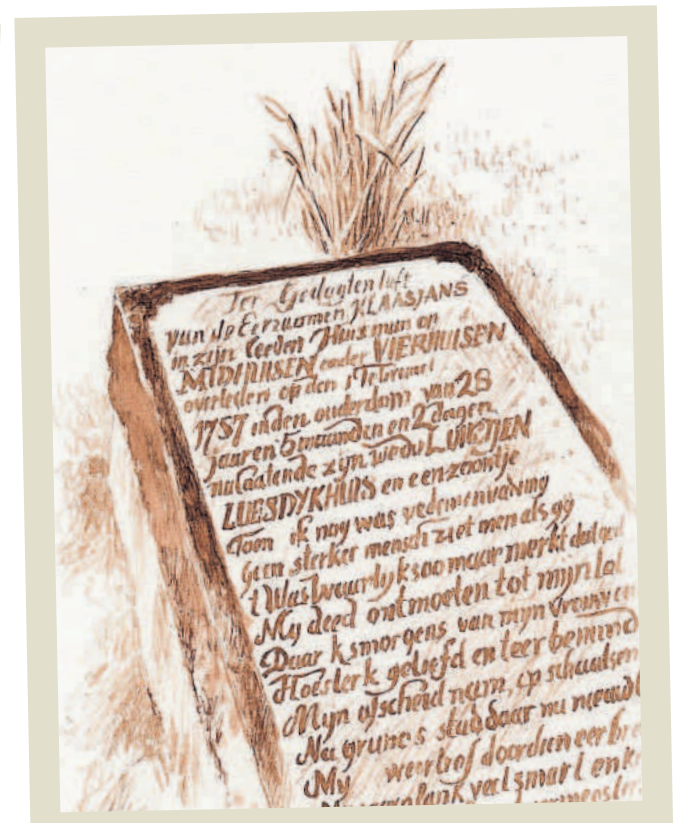 Ter Gedagten luft
van de Eerzaamen KLAASJANS
in zijn leeden Huisman op
MIDDHUISEN onder VIERHUISEN
overleden op den 1 Februari
1757 in den ouderdom van 28
jaaren 5 maanden en 2 dagen
nalaatende zijn wedu LUKTJEN
LUESDYKHUIS en een zoontje
Toen ik nog was
Geen sterker mensch ziet men als gy
't Was waarlyk zoo maar merkt dat
My deed ontmoeten tot mijn lot
Daar k smorgens van myn vrouw en
Hoe sterk geliefd en teer bemind
Myn afscheid nam, op schaatsen
Na grunoos stad daar nu
My weerhof doordien eer
smart en